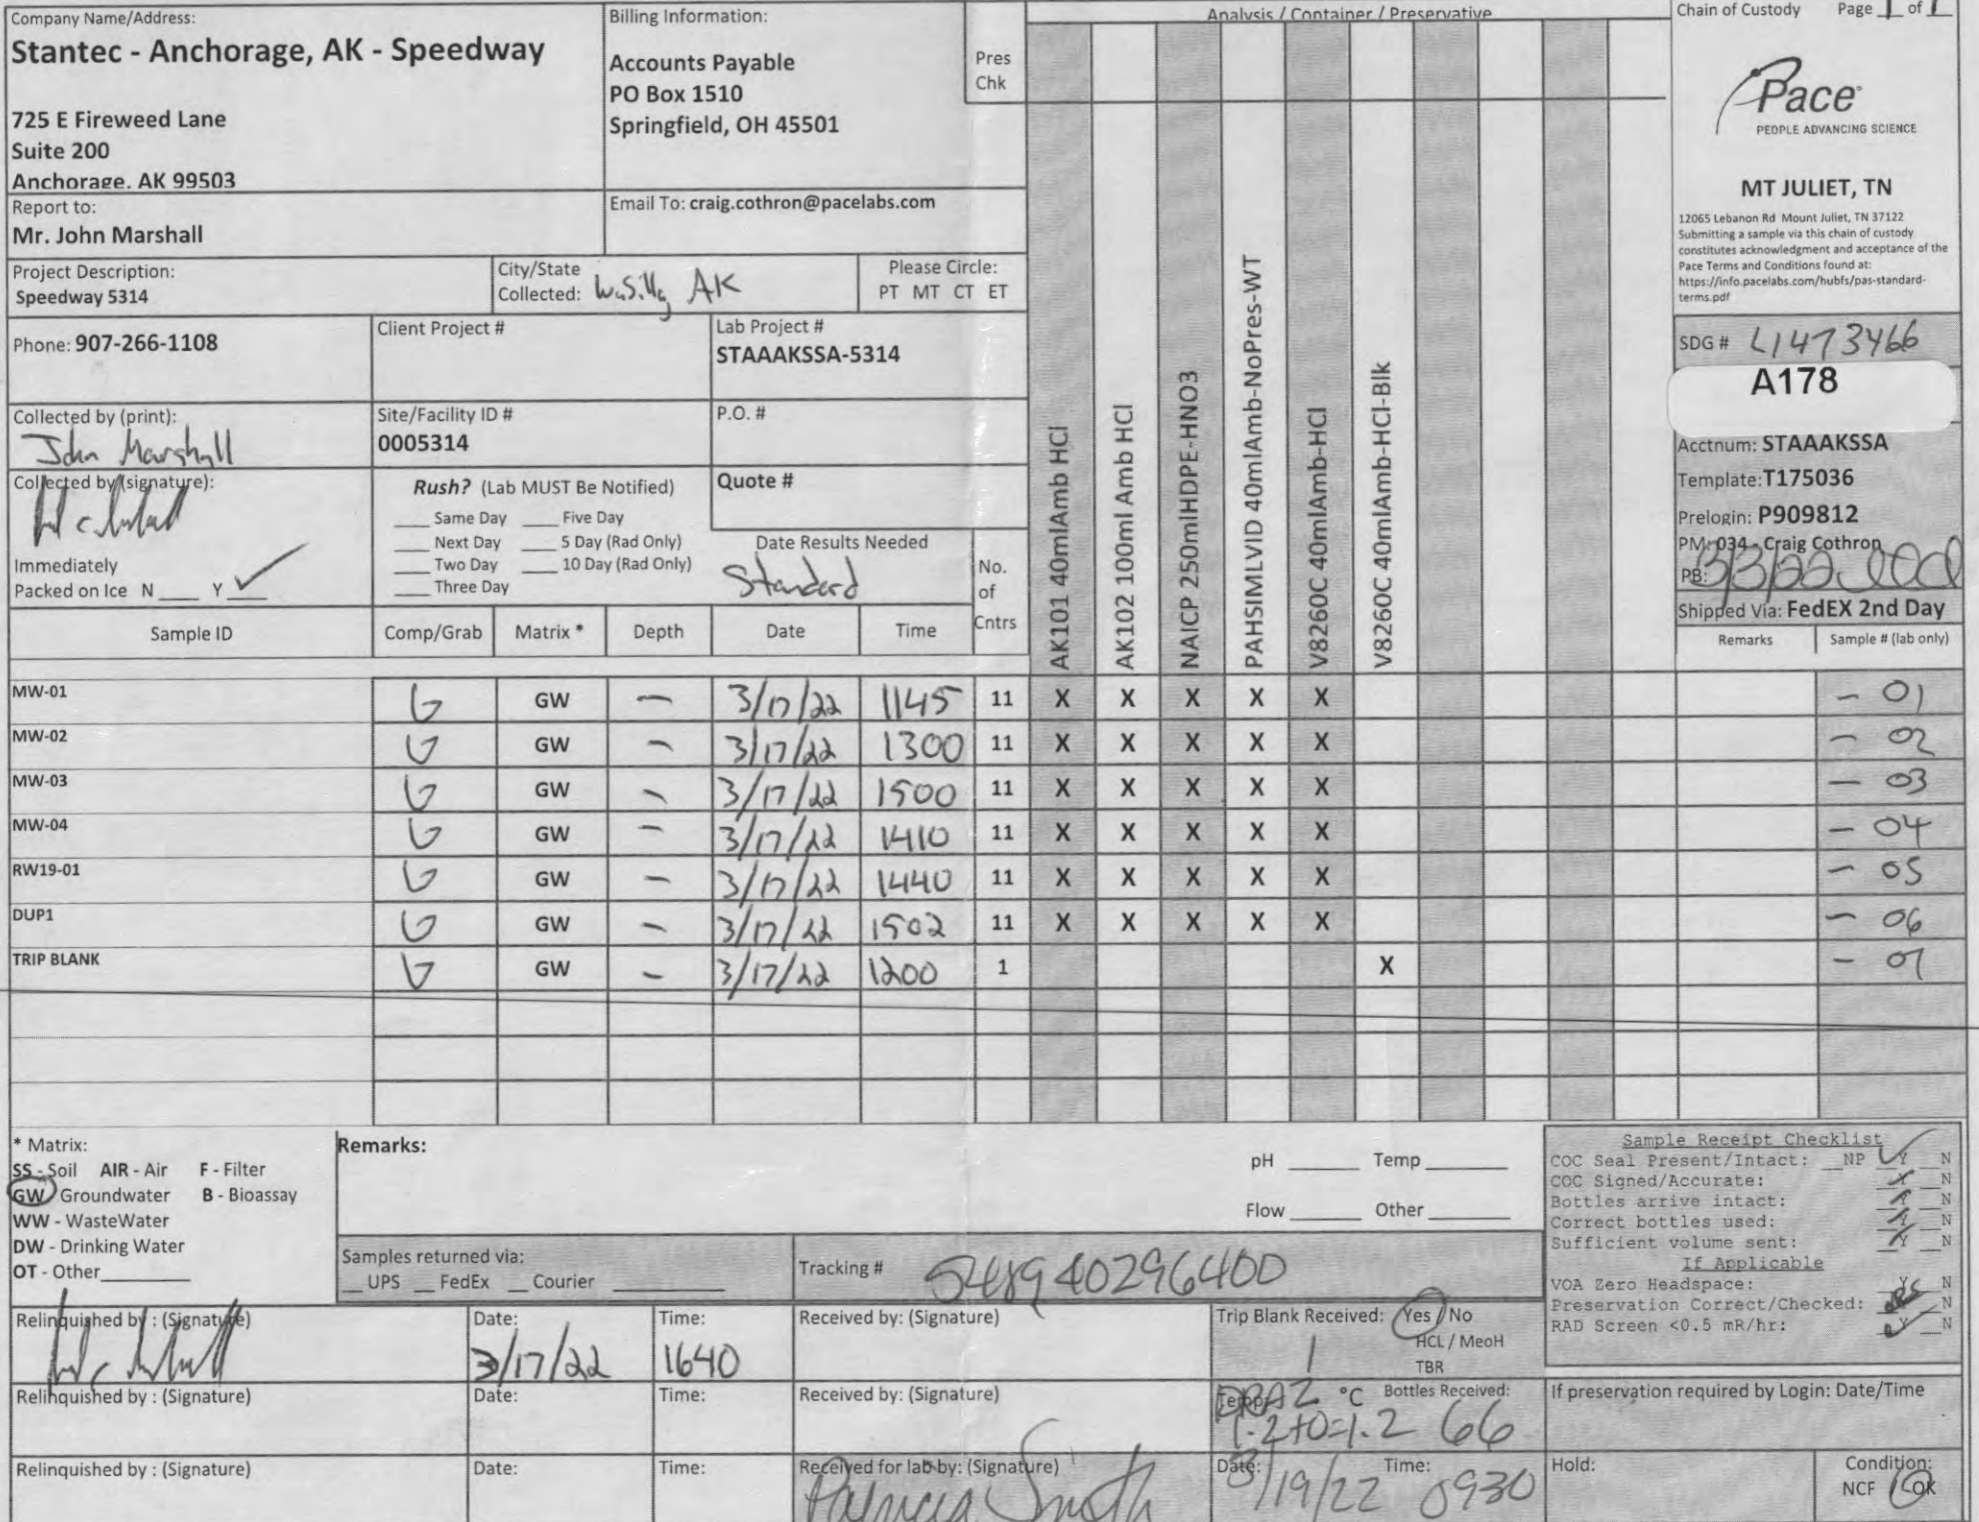 Company Name/Address:
Stantec - Anchorage, AK - Speedway
725 E Fireweed Lane
Suite 200
Anchorage, AK 99503
Billing Information:
Accounts Payable
PO Box 1510
Springfield, OH 45501
Pres
Chk
Analysis / Container / Preservative
Chain of Custody Page 1 of 1
Pace
PEOPLE ADVANCING SCIENCE
MT JULIET, TN
12065 Lebanon Rd Mount Juliet, TN 37122
Submitting a sample via this chain of custody
constitutes acknowledgment and acceptance of the
Pace Terms and Conditions found at:
https://info.pacelabs.com/hubfs/pas-standard-
terms.pdf
Report to:
Mr. John Marshall
Email To: craig.cothron@pacelabs.com
Project Description:
Speedway 5314
City/State
Collected: Wasilla, AK
Please Circle:
PT MT CT ET
Phone: 907-266-1108
Client Project #
Lab Project #
STAAAKSSA-5314
SDG # L1473466
A178
Collected by (print):
John Marshall
Site/Facility ID #
0005314
P.O. #
Acctnum: STAAAKSSA
Template: T175036
Prelogin: P909812
PM: 034 - Craig Cothron
PB: 3/3/22
Shipped Via: FedEX 2nd Day
Collected by (signature):
Immediately
Packed on Ice N ___ Y ✓
Rush? (Lab MUST Be Notified)
___ Same Day ___ Five Day
___ Next Day ___ 5 Day (Rad Only)
___ Two Day ___ 10 Day (Rad Only)
___ Three Day
Quote #
Date Results Needed
Standard
No.
of
Cntrs
AK101 40mlAmb HCl
AK102 100ml Amb HCl
NAICP 250mlHDPE-HNO3
PAHSIMLVID 40mlAmb-NoPres-WT
V8260C 40mlAmb-HCl
V8260C 40mlAmb-HCl-Blk
Sample ID Comp/Grab Matrix * Depth Date Time Remarks Sample # (lab only)
MW-01 G GW — 3/17/22 1145 11 X X X X X - 01
MW-02 G GW — 3/17/22 1300 11 X X X X X - 02
MW-03 G GW — 3/17/22 1500 11 X X X X X - 03
MW-04 G GW — 3/17/22 1410 11 X X X X X - 04
RW19-01 G GW — 3/17/22 1440 11 X X X X X - 05
DUP1 G GW — 3/17/22 1502 11 X X X X X - 06
TRIP BLANK G GW — 3/17/22 1200 1 X - 07
* Matrix:
SS - Soil AIR - Air F - Filter
GW Groundwater B - Bioassay
WW - WasteWater
DW - Drinking Water
OT - Other
Remarks:
pH ___ Temp ___
Flow ___ Other ___
Samples returned via:
__ UPS __ FedEx __ Courier
Tracking # 548940296400
Sample Receipt Checklist
COC Seal Present/Intact: __NP Y __N
COC Signed/Accurate: Y __N
Bottles arrive intact: Y __N
Correct bottles used: Y __N
Sufficient volume sent: Y __N
If Applicable
VOA Zero Headspace: Y __N
Preservation Correct/Checked: Y __N
RAD Screen <0.5 mR/hr: Y __N
Relinquished by : (Signature)
Date:
3/17/22
Time:
1640
Received by: (Signature)
Trip Blank Received: Yes / No
1 HCL / MeoH
TBR
Relinquished by : (Signature)
Date:
Time:
Received by: (Signature)
Temp: °C Bottles Received:
1.2+0=1.2 66
If preservation required by Login: Date/Time
Relinquished by : (Signature)
Date:
Time:
Received for lab by: (Signature)
Patricia Smith
Date: 3/19/22 Time: 0930
Hold:
Condition:
NCF / OK